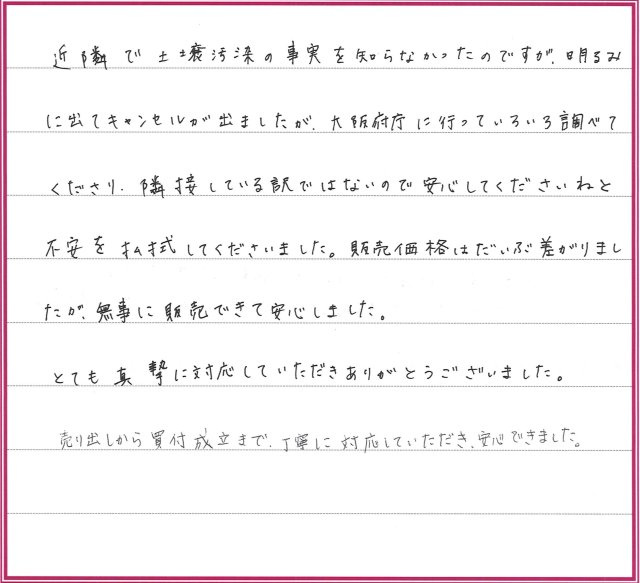 近隣で土壌汚染の事実を知らなかったのですが、明るみ
に出てキャンセルが出ましたが、大阪府庁に行っていろいろ調べて
くださり、隣接している訳ではないので安心してくださいねと
不安を払拭してくださいました。販売価格はだいぶ差がりまし
たが、無事に販売できて安心しました。
とても真摯に対応していただきありがとうございました。
売り出しから買付成立まで、丁寧に対応していただき、安心できました。